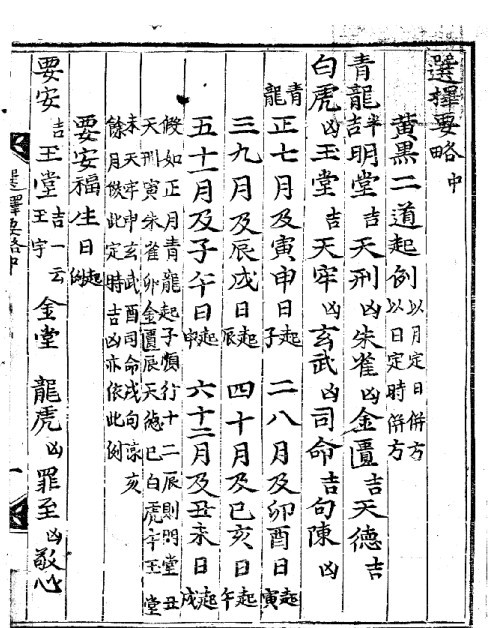 選擇要略中
黃黑二道起例以月定日併方以日定時併方
青龍半吉明堂吉天刑凶朱雀凶金匱吉天德吉
白虎凶玉堂吉天牢凶玄武凶司命吉句陳凶
青龍正七月及寅申日起子二八月及卯酉日起寅
三九月及辰戌日起辰四十月及巳亥日起午
五十一月及子午日起申六十二月及丑未日起戌
假如正月青龍起子順行十二辰則明堂丑
天刑寅朱雀卯金匱辰天德巳白虎午玉堂
未天牢申玄武酉司命戌句陳亥
餘月倣此定時吉凶亦依此例
要安福生日起例
要安吉玉堂吉一云王字金堂龍虎凶罪至凶敬心
選擇要略中 一